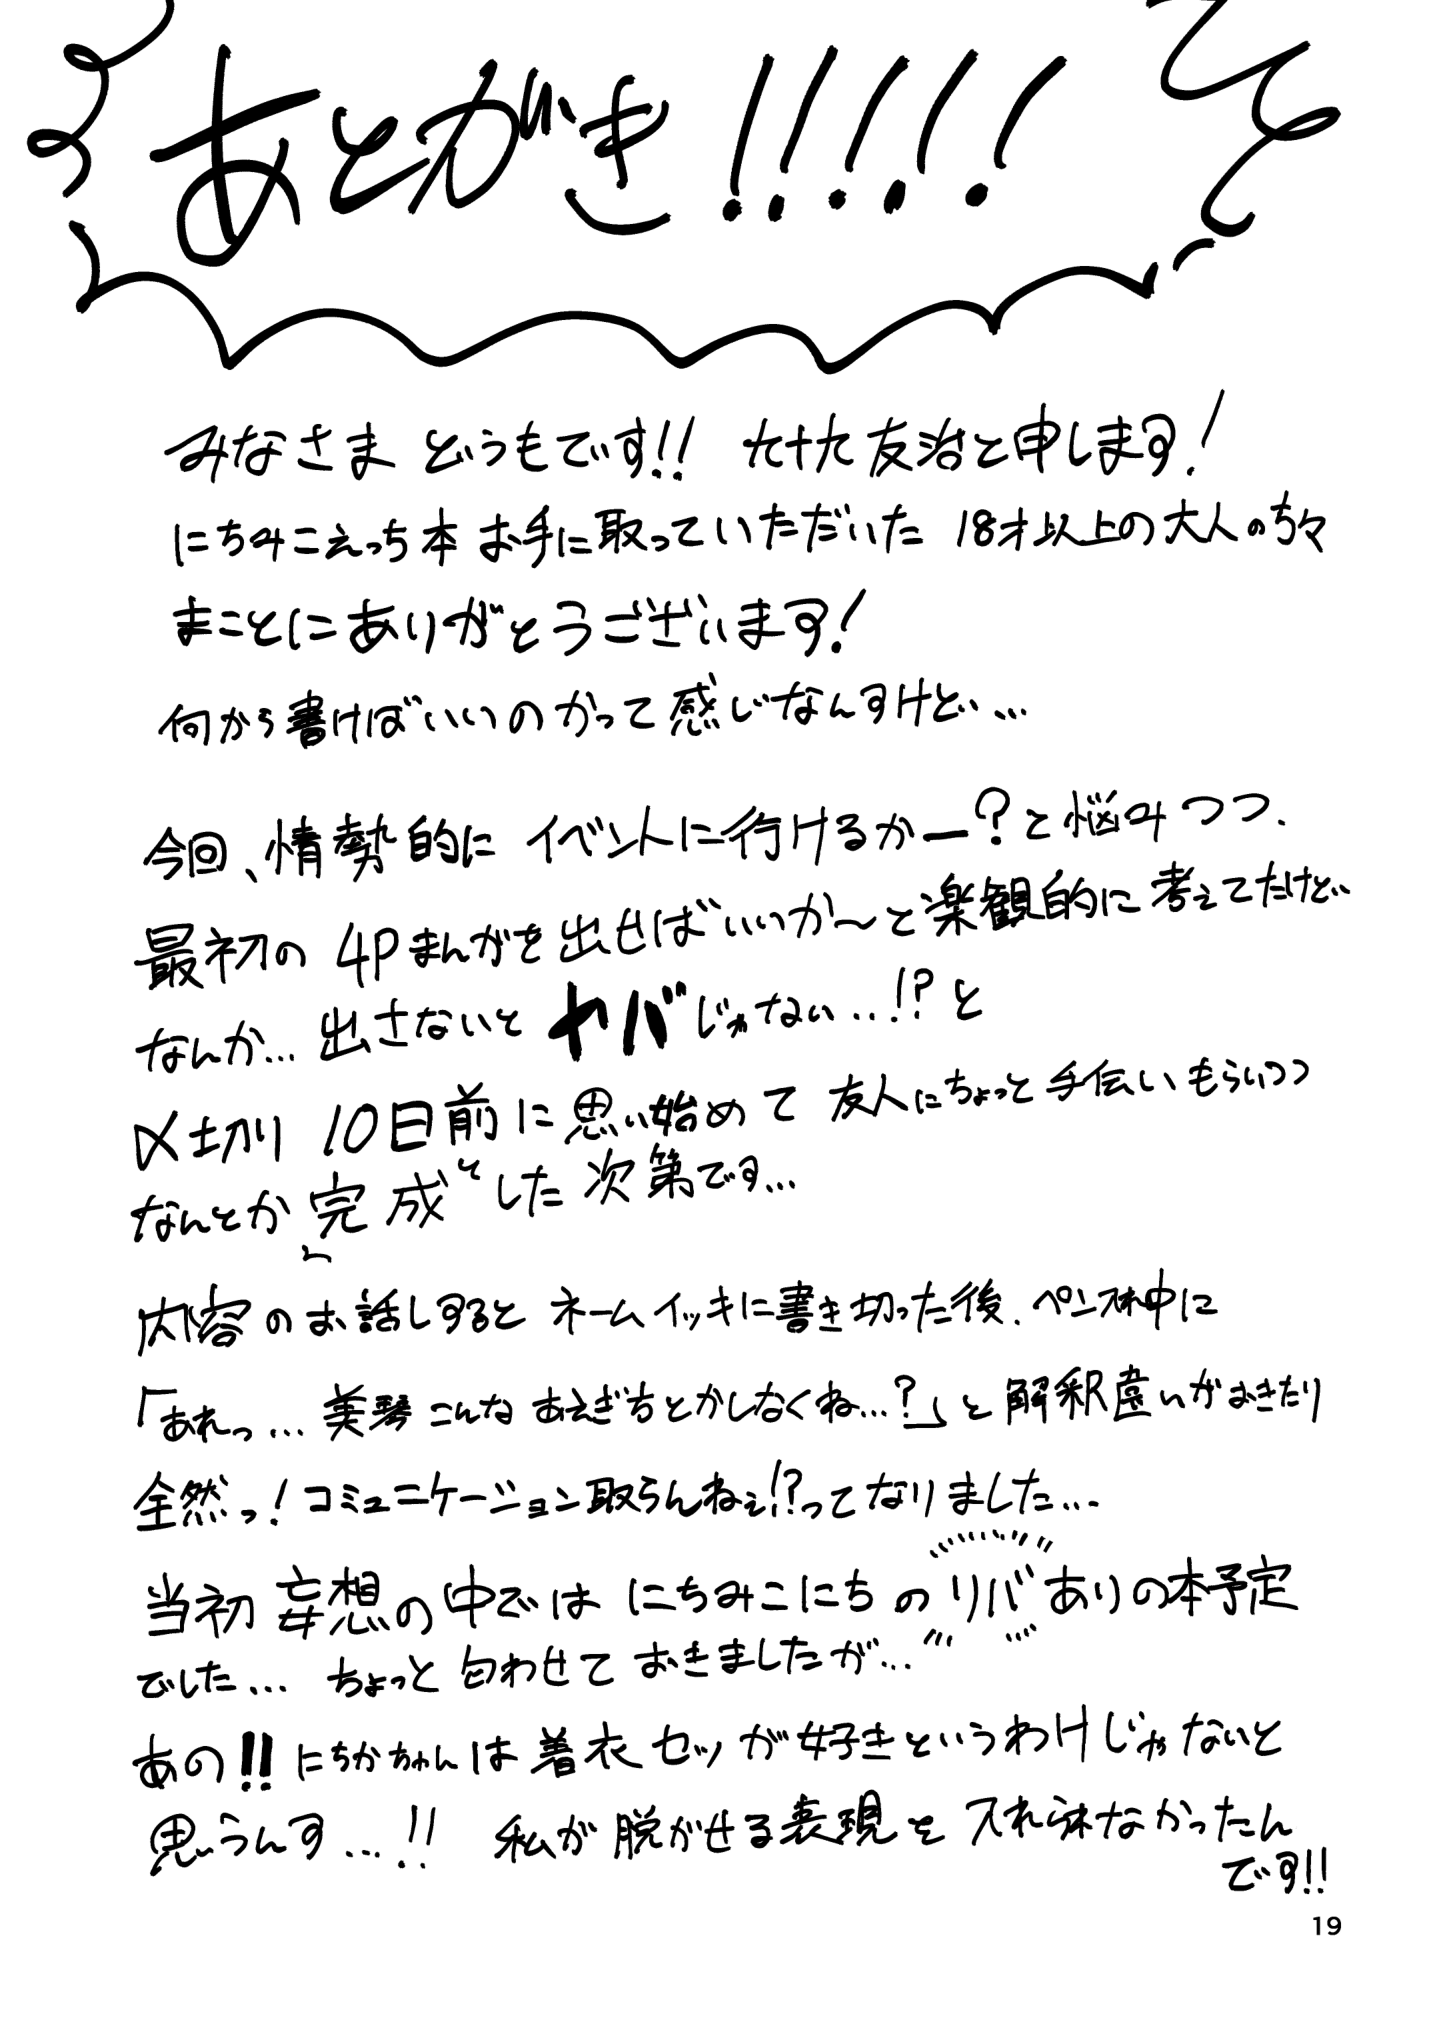 あとがき!!!!!
みなさま どうもです!! 九十九 友治と申します!
にちみこえっち本 お手に取っていただいた 18才以上の大人の方々
まことにありがとうございます!
何から書けばいいのかって感じなんすけど…
今回、情勢的に イベントに行けるかー?と悩みつつ、
最初の 4Pまんがを出せばいいか〜と楽観的に考えてたけど、
なんか… 出さないと ヤバじゃない…!?と
〆切り 10日前に思い始めて 友人にちょっと手伝いもらいつつ
なんとか「完成」した次第です…
内容のお話しすると ネームイッキに書き切った後、ペン入れ中に
「あれっ… 美琴こんな あえぎ方とかしなくね…?」と解釈違いがおきたり
全然っ!コミュニケーション取らんねぇ!?ってなりました…
当初 妄想の中では にちみこにちの リバ ありの本予定
でした… ちょっと匂わせて おきましたが…
あの!! にちかちゃんは着衣セッが好きというわけじゃないと
思うんす…!! 私が脱がせる表現を入れられなかったん
です!!
19